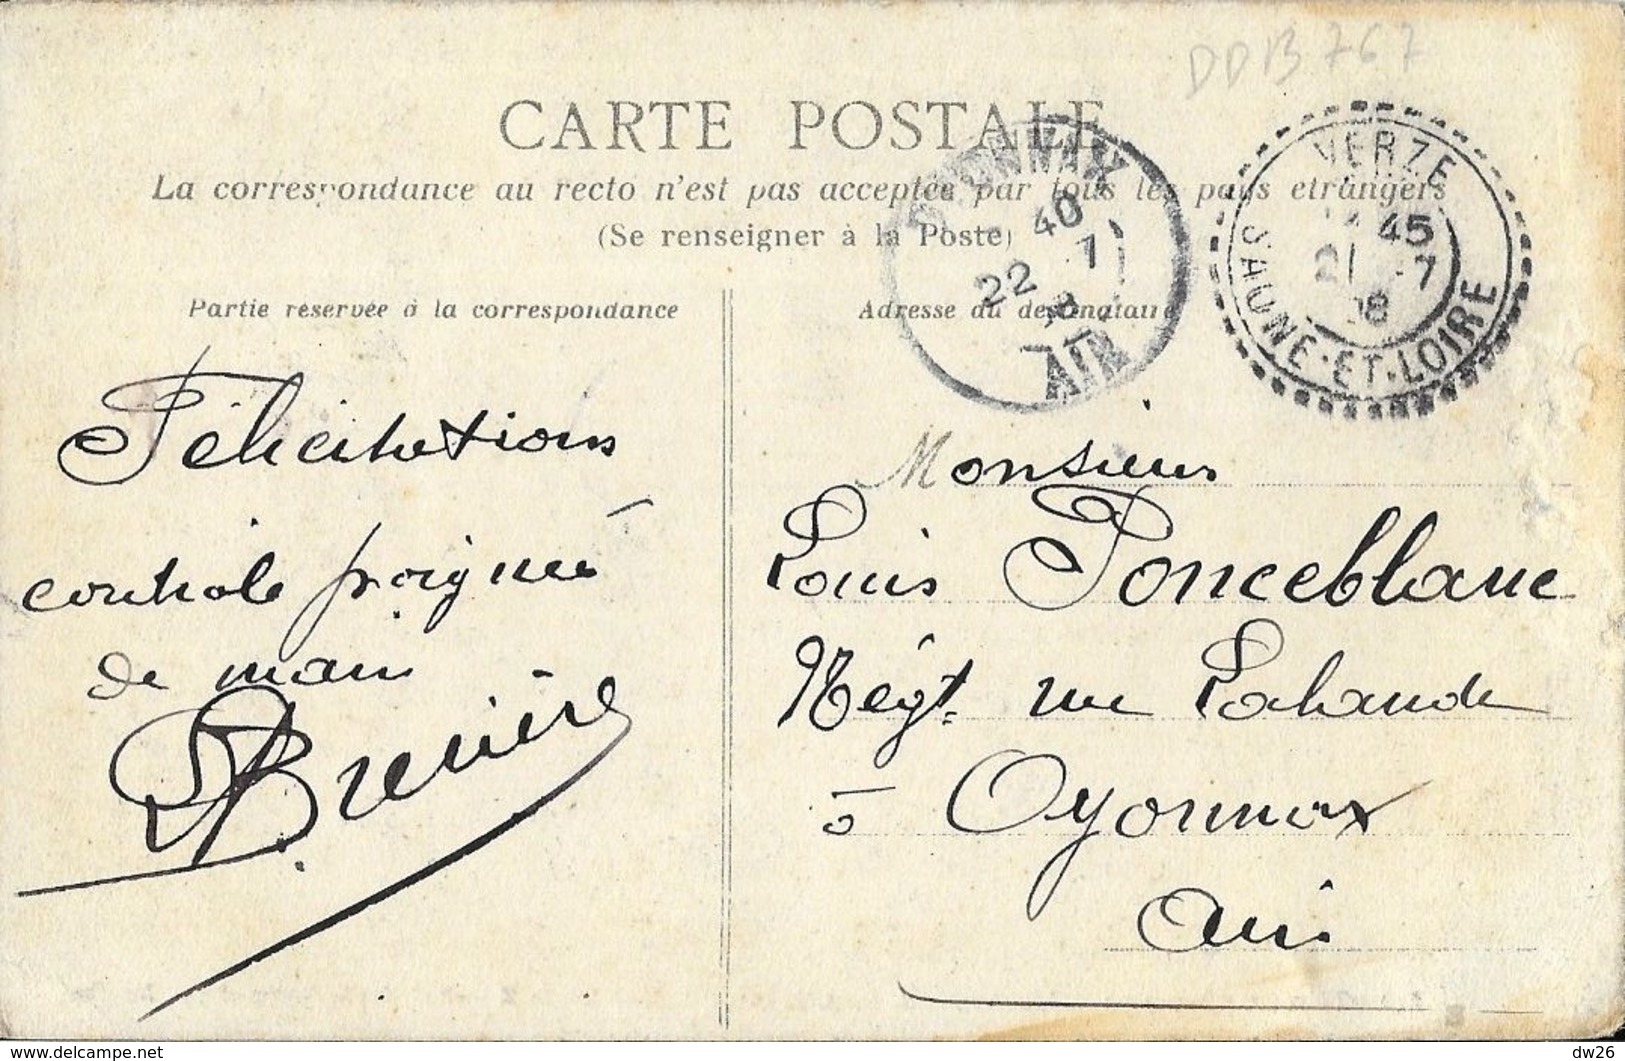 DDB 767
CARTE POSTALE
La correspondance au recto n'est pas acceptée par tous les pays etrangers
(Se renseigner à la Poste)
OYONNAX
40
22 7
AIN
VERZE
45
21 7
08
SAONE-ET-LOIRE
Partie réservée à la correspondance
Félicitations
cordiale poignée
de main
Adresse du destinataire
Monsieur
Louis Ponceblanc
Négt. rue Lalande
à Oyonnax
Ain
delcampe.net
dw26